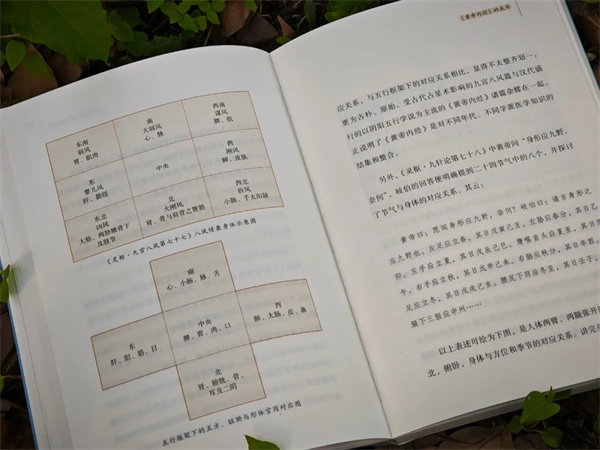 东南
弱风
胃、肌肉
南
大弱风
心、脉
西南
谋风
脾、肌
东
婴儿风
肝、筋纽
中央
西
刚风
肺、皮肤
东北
凶风
大肠、两胁腋骨下
及肢节
北
大刚风
肾、骨与肩背之膂筋
西北
折风
小肠、手太阳脉
《灵枢·九宫八风第七十七》八风侵袭身体示意图
南
心、小肠、脉、舌
东
肝、胆、筋、目
中央
脾、胃、肉、口
西
肺、大肠、皮、鼻
北
肾、膀胱、骨、
耳及二阴
五行框架下的五方、脏腑与形体官窍对应图
《黄帝内经》的成书
应关系，与五行框架下的对应关系相比，显得不太整齐划一，
更为古朴、原始。受古代占星术影响的九宫八风篇与汉代盛
行的以阴阳五行学说为主流的《黄帝内经》诸篇杂糅在一起，
正说明了《黄帝内经》是对不同年代、不同学派医学知识的
结集和整合。
另外，《灵枢·九针论第七十八》中黄帝问“身形应九野，
奈何”，岐伯的回答既明确提到二十四节气中的八个，并探讨
了节气与身体的对应关系。其云：
黄帝曰：愿闻身形应九野，奈何？岐伯曰：请言身形之
应九野也，左足应立春，其日戊寅己丑。左胁应春分，其日乙
卯。左手应立夏，其日戊辰己巳。膺喉首头应夏至，其日丙
午。右手应立秋，其日戊申己未。右胁应秋分，其日辛酉。
足应立冬，其日戊戌己亥。腰尻下窍应冬至，其日壬子。
膈下三脏应中州……
以上表述可绘为下图，是人体两臂、两腨张开
北，俯卧，身体与方位和季节的对应关系。讲完